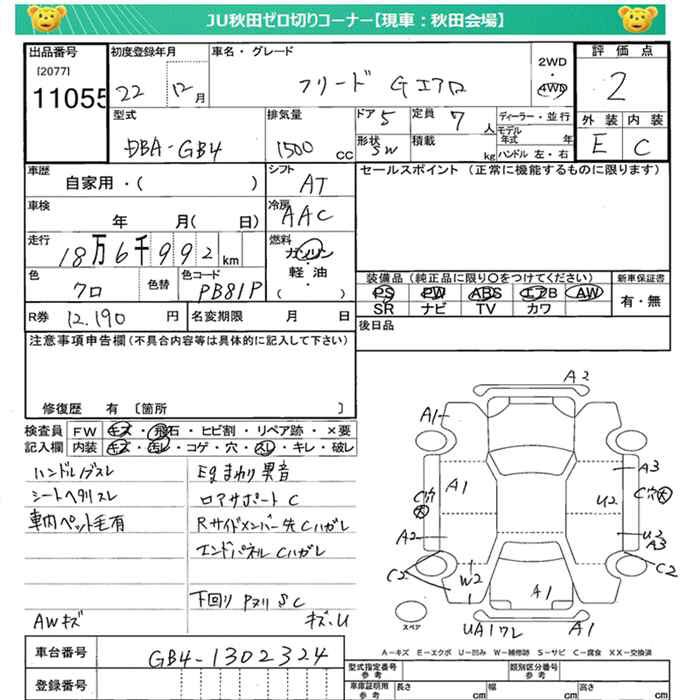 JU秋田ゼロ切りコーナー【現車：秋田会場】
出品番号 初度登録年月 車名・グレード 評価点
[2077]
11055
22 12月
フリード Gエアロ
2WD・4WD
2
型式 DBA-GB4
排気量 1500 CC
ドア 5 定員 7 人
形状 SW 積載 kg
ディーラー・並行
モデル年式 年
ハンドル 左・右
外装 内装
E C
車歴 自家用・( )
シフト AT
セールスポイント (正常に機能するものに限ります)
車検 年 月( 日)
冷房 AAC
走行 18万6千992km
燃料 ガソリン・軽油・( )
色 クロ 色替 色コード PB81P
装備品 (純正品に限り〇をつけてください) 新車保証書
PS PW ABS エアB AW
SR ナビ TV カワ
有・無
R券 12.190 円 名変期限 月 日
後日品
注意事項申告欄(不具合内容等は具体的に記入して下さい)
修復歴 有 〔箇所 〕
検査員記入欄
FW キズ・飛石・ヒビ割・リペア跡・×要
内装 キズ・汚レ・コゲ・穴・スレ・キレ・破レ
ハンドルスレ
シートヘタリスレ
車内ペット毛有
AWキズ
Egまわり異音
ロアサポートC
Rサイドメンバー先Cハガレ
エンドパネルCハガレ
下回りPヌリSC
キズ・U
A2
A1
A1
A3
C穴大
U2
C穴大
A2
U2
A3
C2
W2
C2
A1
スペア
UA1ワレ
A1
A－キズ E－エクボ U－凹み W－補修跡 S－サビ C－腐食 XX－交換済
車台番号 GB4-1302324
登録番号
型式指定番号 参考 類別区分番号 参考
車庫証明用 参考 長さ cm 幅 cm 高さ cm